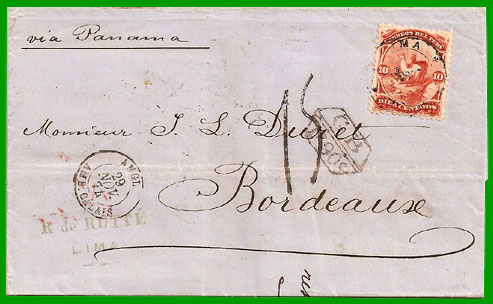 via Panama
CORREOS DEL PERU
10 10
DIEZ CENTAVOS
MA
Monsieur J. L. Duret
15
G B
Bordeaux
ANGL.
29
NOV
CALAIS
R. de RUTTÉ
LIMA